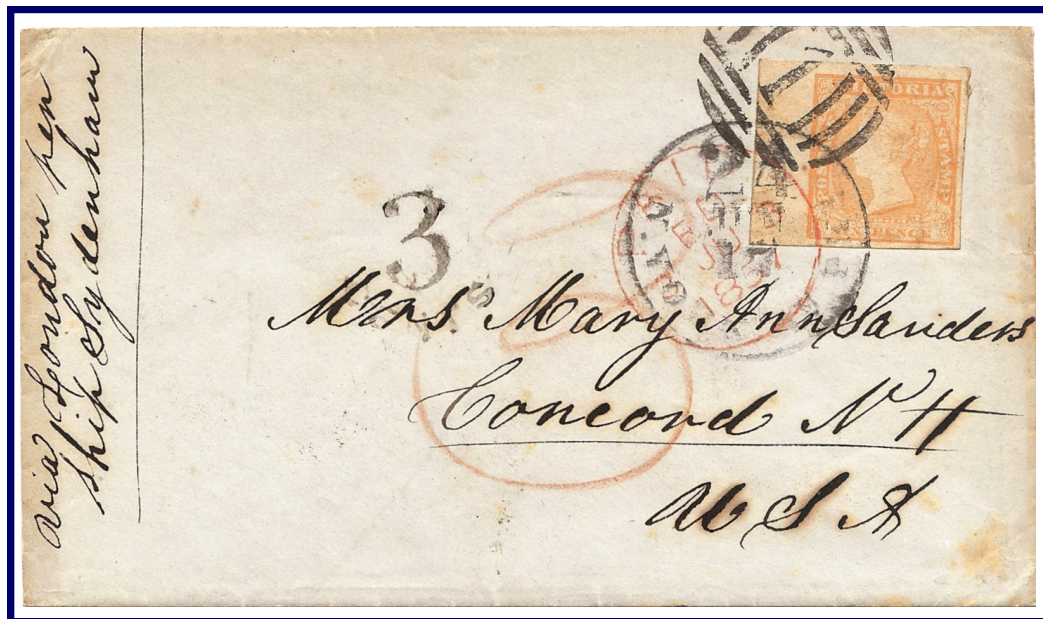 via London per
ship Sydenham
3
VICTORIA
STAMP
PAID
24
JUN
17
Mrs Mary Ann Sanders
Concord N H
U S A